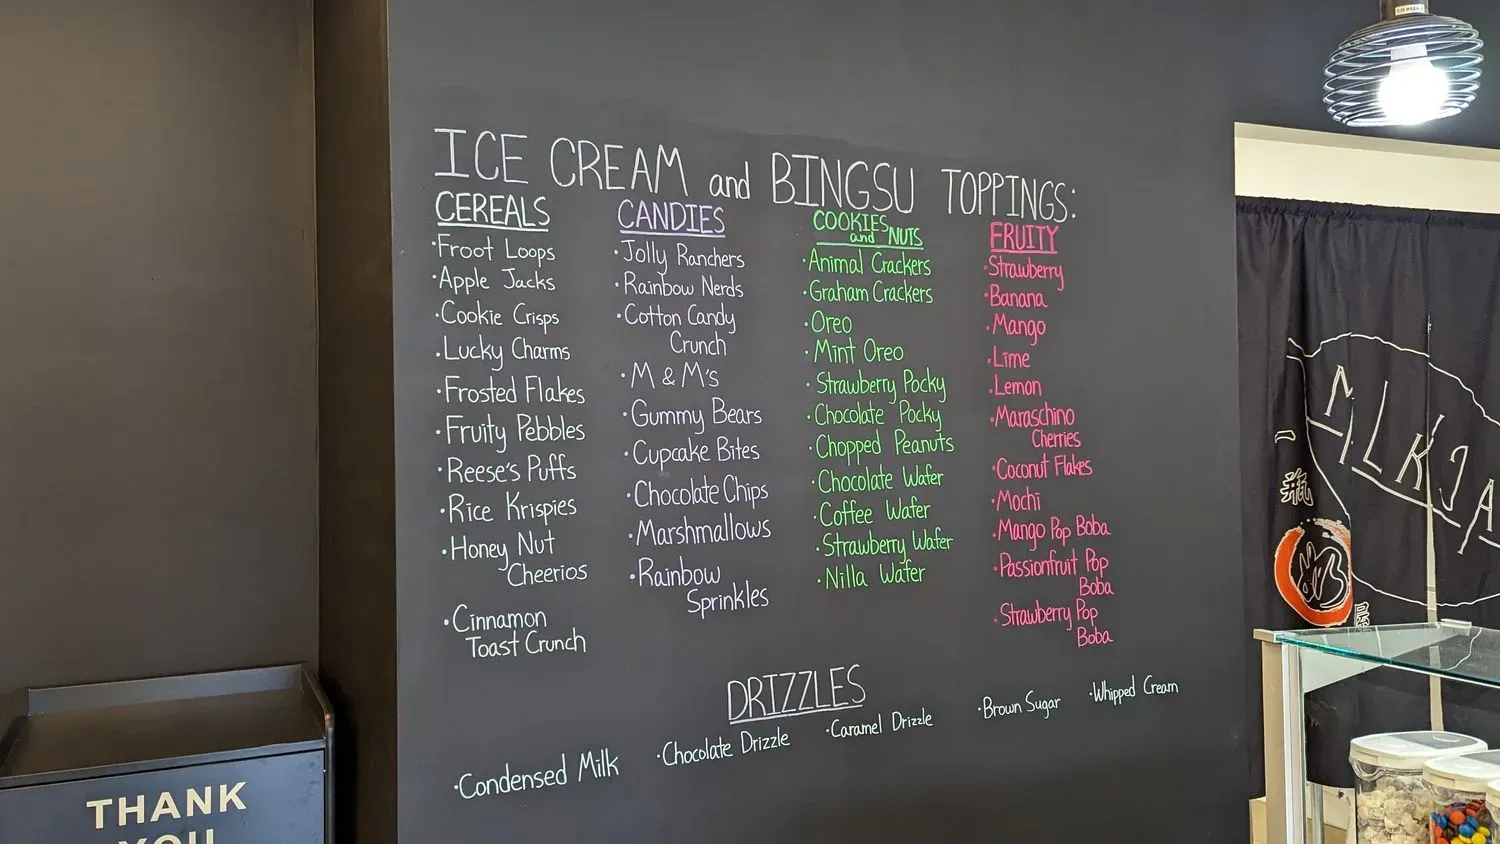 ICE CREAM and BINGSU TOPPINGS:
CEREALS
·Froot Loops
·Apple Jacks
·Cookie Crisps
·Lucky Charms
·Frosted Flakes
·Fruity Pebbles
·Reese's Puffs
·Rice Krispies
·Honey Nut
Cheerios
·Cinnamon
Toast Crunch
CANDIES
·Jolly Ranchers
·Rainbow Nerds
·Cotton Candy
Crunch
·M & M's
·Gummy Bears
·Cupcake Bites
·Chocolate Chips
·Marshmallows
·Rainbow
Sprinkles
COOKIES
and NUTS
·Animal Crackers
·Graham Crackers
·Oreo
·Mint Oreo
·Strawberry Pocky
·Chocolate Pocky
·Chopped Peanuts
·Chocolate Wafer
·Coffee Wafer
·Strawberry Wafer
·Nilla Wafer
FRUITY
·Strawberry
·Banana
·Mango
·Lime
·Lemon
·Maraschino
Cherries
·Coconut Flakes
·Mochi
·Mango Pop Boba
·Passionfruit Pop
Boba
·Strawberry Pop
Boba
DRIZZLES
·Condensed Milk
·Chocolate Drizzle
·Caramel Drizzle
·Brown Sugar
·Whipped Cream
THANK
YOU
MILKJA